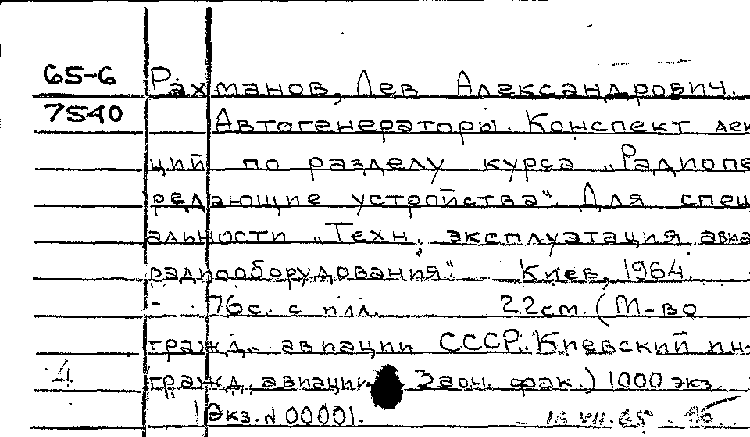 65-6 Рахманов, Лев Александрович.
7540 Автогенераторы. Конспект лек
ций по разделу курса „Радиопе
редающие устройства". Для спец
альности „Техн. эксплуатация авиа
радиооборудования". Киев, 1964.
- 76с. с илл. 22см. (М-во
гражд. авиации СССР. Киевский ин-
4 гражд. авиации. Заоч. фак.) 1000 экз.
1 Экз. № 00001. VII.65